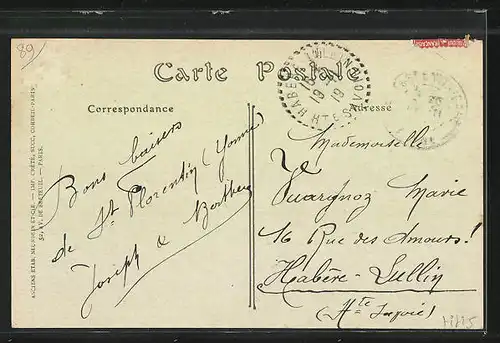 89
Carte Postale
Correspondance
Adresse
Bons baisers
de St Florentin (Yonne)
Joseph & Berthe
Mademoiselle
Vuargnoz Marie
16 Rue des Amours!
Habère-Lullin
(Hte Savoie)
HTE SAVOIE
ANCIENS ETAB. NEURDEIN ET CIE. — IMP. CRÉTÉ, SUCC. CORBEIL-PARIS
52, AV. DE BRETEUIL. — PARIS.